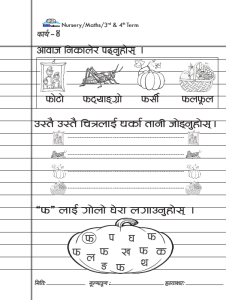 Nursery/Maths/3rd & 4th Term
कार्य - 8
आवाज निकालेर पढ्नुहोस् ।
फोटो फट्याङ्ग्रो फर्सी फलफूल
उस्तै उस्तै चित्रलाई धर्का तानी जोड्नुहोस् ।
"फ" लाई गोलो घेरा लगाउनुहोस् ।
फ प घ फ
फ ल ख फ फ क
ङ फ थ
मिति: मूल्याङ्कन: हस्ताक्षर: